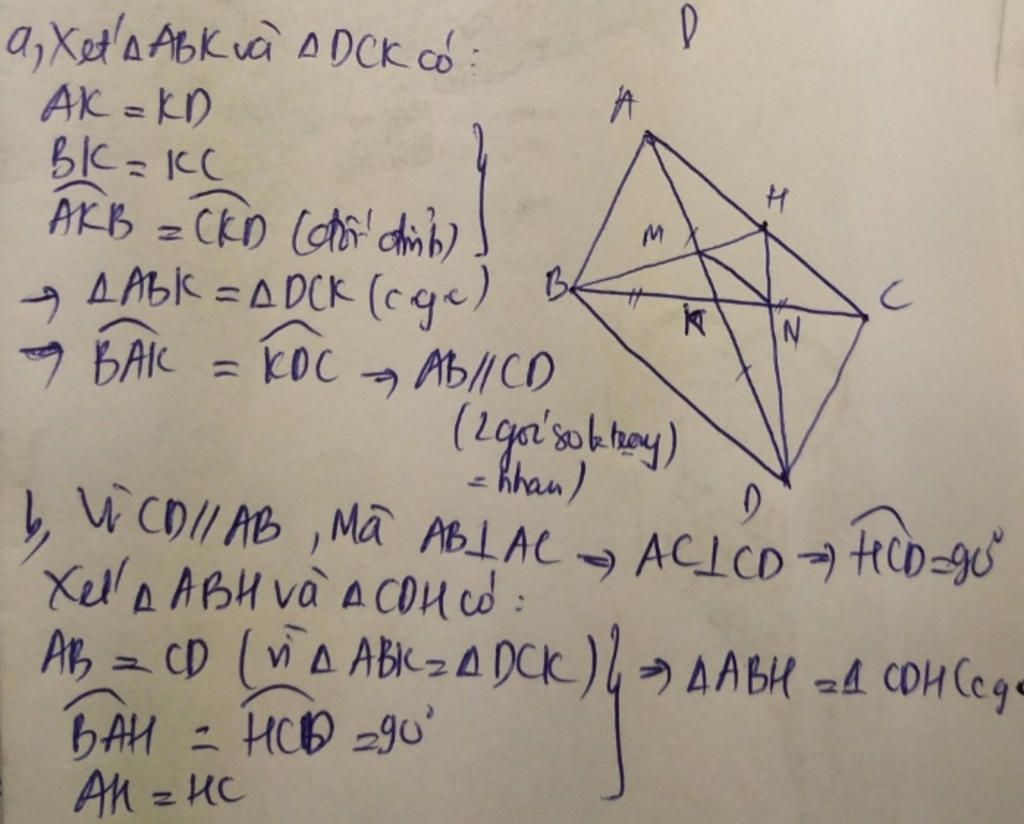 D
a, Xét Δ ABK và Δ DCK có:
AK = KD
BK = KC
AKB = CKD (đối đỉnh)
→ Δ ABK = Δ DCK (cgc)
⇒ BAK = KDC → AB // CD
(2 góc so le trong)
= nhau)
A
H
M
B
C
K
N
D
b, Vì CD // AB, Mà AB ⊥ AC ⇒ AC ⊥ CD → HCD = 90°
Xét Δ ABH và Δ CDH có:
AB = CD (vì Δ ABK = Δ DCK) } ⇒ Δ ABH = Δ CDH (cg
BAH = HCD = 90°
AH = HC